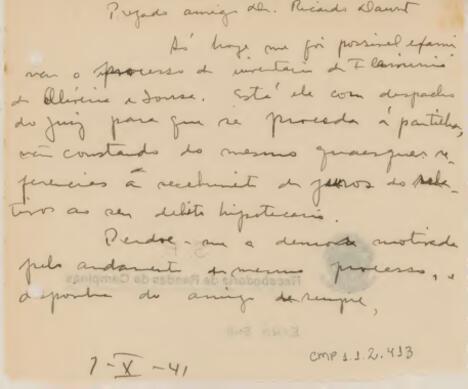 Prezado amigo Dr. Ricardo Daunt
Só hoje me foi possivel exami
nar o processo de inventario de
de Oliveira e Souza. Está ele com despacho
do juiz para que se proceda á partilha,
não constando do mesmo quaesquer re
ferencias á recebimento de juros do rela
tivos ao seu debito hipotecario.
Perdoe-me a demora motivada
pelo andamento do mesmo processo, e
disponha do amigo de sempre,
Recebedoria de Rendas de Campinas
7-X-41
CMP 1.1.2.413